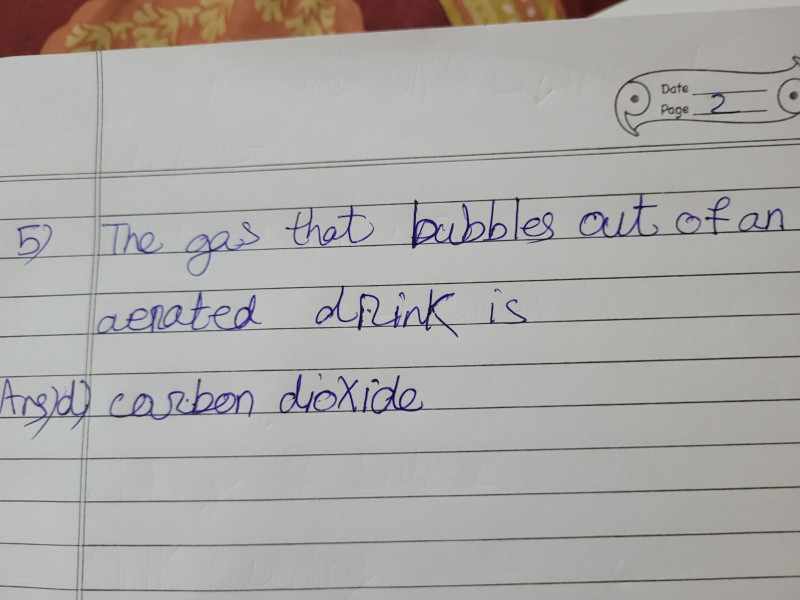 Date
Page 2
5) The gas that bubbles out of an
aerated drink is
Ans)d) carbon dioxide